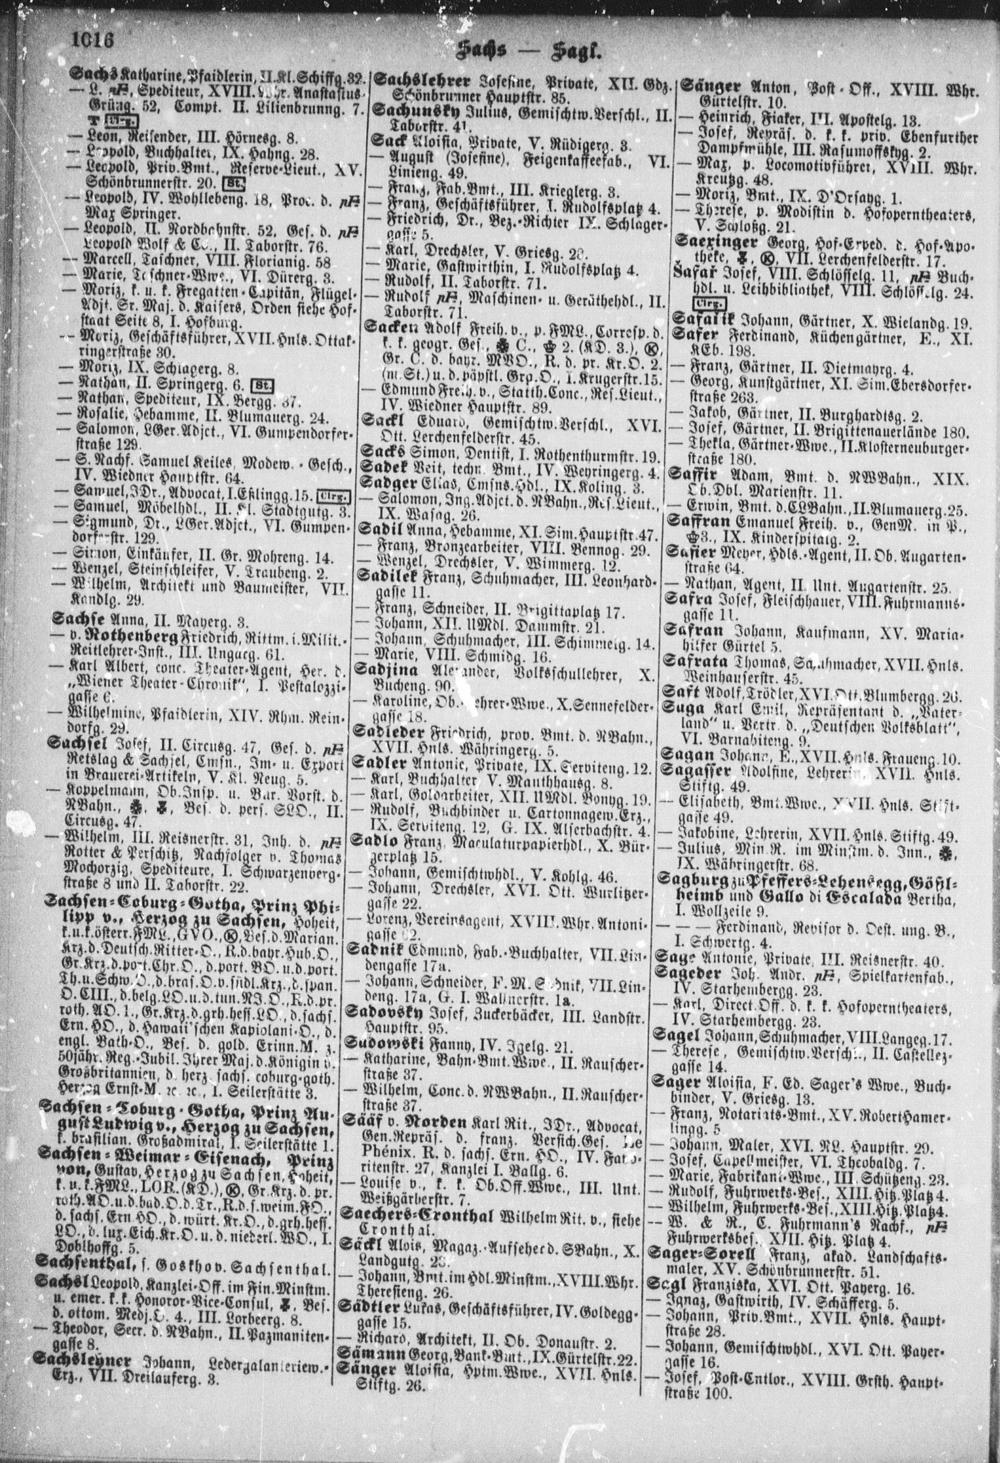 1016
Sachs — Sagl.
Sachs Katharine, Pfaidlerin, II. Kl. Schiffg. 32.
— L. Spediteur, XVIII. Anastasius-
Grüng. 52, Compt. II. Lilienbrunng. 7.
— Leon, Reisender, III. Hörnesg. 8.
— Leopold, Buchhalter, IX. Hahng. 28.
— Leopold, Priv.Bmt., Reserve-Lieut., XV.
Schönbrunnerstr. 20. St.
— Leopold, IV. Wohllebeng. 18, Proc. d.
Max Springer.
— Leopold, II. Nordbahnstr. 52, Ges. d.
Leopold Wolf & Co., II. Taborstr. 76.
— Marcell, Taschner, VIII. Florianig. 58
— Marie, Taschner-Wwe., VI. Dürerg. 3.
— Moriz, k. u. k. Fregatten-Capitän, Flügel-
Adjt. Sr. Maj. d. Kaisers, Orden siehe Hof-
staat Seite 8, I. Hofburg.
— Moriz, Geschäftsführer, XVII. Hnls. Ottak-
ringerstraße 30.
— Moriz, IX. Schlagerg. 8.
— Nathan, II. Springerg. 6. St.
— Nathan, Spediteur, IX. Bergg. 37.
— Rosalie, Hebamme, II. Blumauerg. 24.
— Salomon, LGer.Adjct., VI. Gumpendorfer-
straße 129.
— S. Nachf. Samuel Keiles, Modew.-Gesch.,
IV. Wiedner Hauptstr. 64.
— Samuel, JDr., Advocat, I. Eßlingg. 15. Clrg.
— Samuel, Möbelhdl., II. Kl. Stadtgutg. 3.
— Sigmund, Dr., LGer.Adjct., VI. Gumpen-
dorferstr. 129.
— Simon, Einkäufer, II. Gr. Mohreng. 14.
— Wenzel, Steinschleifer, V. Traubeng. 2.
— Wilhelm, Architekt und Baumeister, VII.
Kandlg. 29.
Sachse Anna, II. Mayerg. 3.
— v. Rothenberg Friedrich, Rittm. i. Milit.-
Reitlehrer-Inst., III. Ungarg. 61.
— Karl Albert, conc. Theater-Agent, Her. d.
„Wiener Theater-Chronik", I. Pestalozzi-
gasse 6.
— Wilhelmine, Pfaidlerin, XIV. Rhm. Rein-
dorfg. 29.
Sachsel Josef, II. Circusg. 47, Ges. d.
Retslag & Sachsel, Cmsn., Im- u. Export
in Brauerei-Artikeln, V. Kl. Neug. 5.
— Koppelmann, Ob.Insp. u. Bur. Vorst. d.
NBahn., Bes. d. pers. SLO., II.
Circusg. 47.
— Wilhelm, III. Reisnerstr. 31, Inh. d.
Rotter & Perschitz, Nachfolger v. Thomas
Mochorzig, Spediteure, I. Schwarzenberg-
straße 8 und II. Taborstr. 22.
Sachsen-Coburg-Gotha, Prinz Phi-
lipp v., Herzog zu Sachsen, Hoheit,
k.u.k.österr.FML., GVO., Bes.d.Marian.
Krz.d.Deutsch.Ritter-O., R.d.bayr.Hub.O.,
Gr.Krz.d.port.Chr.O., d.port. BO.u.d.port.
Th.u.Schw.O., d.bras.O.v.südl.Krz., d.span.
O. CIII., d.belg.LO.u.d.tun.NJ.O., K.d.pr.
roth. AO. 1., Gr.Krz.d.grh.hess.LO., d.sachs.
Ern. HO., d. Hawaii'schen Kapiolani-O., d.
engl. Bath-O., Bes. d. gold. Erinn.M. z.
50jähr. Reg.-Jubil. Ihrer Maj. d. Königin v.
Großbritannien, d. herz. sachs. coburg-goth.
Herzog Ernst-M. I. Seilerstätte 3.
Sachsen-Coburg-Gotha, Prinz Au-
gust Ludwig v., Herzog zu Sachsen,
k. brasilian. Großadmiral, I. Seilerstätte 1.
Sachsen-Weimar-Eisenach, Prinz
von, Gustav, Herzog zu Sachsen, Hoheit,
k. u. k. FML., LOR. (KD.), Gr.Krz. d. pr.
roth. AO. u. d. bad. O. d. Tr., R. d. s. weim. FO.,
d. sachs. Ern HO., d. württ. Kr. O., d. grh. hess.
LO., d. lux. Eich. Kr. O. u. d. niederl. WO., I.
Doblhoffg. 5.
Sachsenthal, s. Goskhov. Sachsenthal.
Sachsl Leopold, Kanzlei-Off. im Fin.Minstm.
u. emer. k. k. Honorar-Vice-Consul, Bes.
d. ottom. Medj.O. 4., III. Lorbeerg. 8.
— Theodor, Secr. d. NBahn., II. Pazmaniten-
gasse 8.
Sachslehner Johann, Ledergalanteriew.-
Erz., VII. Dreilauferg. 3.
Sachslehrer Josefine, Private, XII. Gdz.
Schönbrunner Hauptstr. 85.
Sachunsky Julius, Gemischtw.Verschl., II.
Taborstr. 41.
Sack Aloisia, Private, V. Rüdigerg. 3.
— August (Josefine), Feigenkaffeefab., VI.
Linieng. 49.
— Franz, Fab.Bmt., III. Krieglerg. 3.
— Franz, Geschäftsführer, I. Rudolfsplatz 4.
— Friedrich, Dr., Bez.-Richter IX. Schlager-
gasse 5.
— Karl, Drechsler, V. Griesg. 28.
— Marie, Gastwirthin, I. Rudolfsplatz 4.
— Rudolf, II. Taborstr. 71.
— Rudolf, Maschinen- u. Geräthehdl., II.
Taborstr. 71.
Sacken Adolf Freih. v., p. FML., Corresp. d.
k. k. geogr. Ges., C., 2. (KD. 3.),
Gr. C. d. bayr. MVO., R. d. pr. Kr.O. 2.
(m. St.) u. d. päpstl. Grg.O., I. Krugerstr. 15.
— Edmund Freih. v., Statth.Conc., Res.Lieut.,
IV. Wiedner Hauptstr. 89.
Sackl Eduard, Gemischtw.Verschl., XVI.
Ott. Lerchenfelderstr. 45.
Sacks Simon, Dentist, I. Rothenthurmstr. 19.
Sadek Veit, techn. Bmt., IV. Weyringerg. 4.
Sadger Elias, Cmsns.Hdl., IX. Koling. 3.
— Salomon, Ing.Adjct. d. NBahn., Res.Lieut.,
IX. Wasag. 26.
Sadil Anna, Hebamme, XI. Sim. Hauptstr. 47.
— Franz, Bronzearbeiter, VIII. Bennog. 29.
— Wenzel, Drechsler, V. Wimmerg. 12.
Sadilek Franz, Schuhmacher, III. Leonhard-
gasse 11.
— Franz, Schneider, II. Brigittaplatz 17.
— Johann, XII. UMdl. Dammstr. 21.
— Johann, Schuhmacher, III. Schimmelg. 14.
— Marie, VIII. Schmidg. 16.
Sadjina Alexander, Volksschullehrer, X.
Bucheng. 90.
— Karoline, Ob.-Lehrer-Wwe., X. Sennefelder-
gasse 18.
Sadleder Friedrich, prov. Bmt. d. NBahn.,
XVII. Hnls. Währingerg. 5.
Sadler Antonie, Private, IX. Serviteng. 12.
— Karl, Buchhalter, V. Manthhausg. 8.
— Karl, Goldarbeiter, XII. UMdl. Bonyg. 19.
— Rudolf, Buchbinder u. Cartonnagew.Erz.,
IX. Serviteng. 12, G. IX. Alserbachstr. 4.
Sadlo Franz, Maculaturpapierhdl., X. Bür-
gerplatz 15.
— Johann, Gemischtwhdl., V. Kohlg. 46.
— Johann, Drechsler, XVI. Ott. Wurlitzer-
gasse 22.
— Lorenz, Vereinsagent, XVIII. Whr. Antoni-
gasse 2.
Sadnik Edmund, Fab.-Buchhalter, VII. Lin-
dengasse 17a.
— Johann, Schneider, F. M. Sadnik, VII. Lin-
deng. 17a, G. I. Wallnerstr. 1a.
Sadovsky Josef, Zuckerbäcker, III. Landstr.
Hauptstr. 95.
Sadowski Fanny, IV. Igelg. 21.
— Katharine, Bahn-Bmt.Wwe., II. Rauscher-
straße 37.
— Wilhelm, Conc. d. NWBahn., II. Rauscher-
straße 37.
Sääf v. Norden Karl Rit., JDr., Advocat,
Gen.Repräs. d. franz. Versich.Ges. Le
Phénix. R. d. sachs. Ern. HO., IV. Favo-
ritenstr. 27, Kanzlei I. Ballg. 6.
— Louise v., k. k. Ob.Off.Wwe., III. Unt.
Weißgärberstr. 7.
Saechers-Cronthal Wilhelm Rit. v., siehe
Cronthal.
Säckl Alois, Magaz.-Aufseher d. SBahn., X.
Landgutg. 23.
— Johann, Bmt. im Hdl.Minstm., XVIII. Whr.
Theresieng. 26.
Sädtler Lukas, Geschäftsführer, IV. Goldegg-
gasse 15.
— Richard, Architekt, II. Ob. Donaustr. 2.
Sämann Georg, Bank-Bmt., IX. Gürtelstr. 22.
Sänger Aloisia, Hptm.Wwe., XVII. Hnls.
Stiftg. 26.
Sänger Anton, Post-Off., XVIII. Whr.
Gürtelstr. 10.
— Heinrich, Fiaker, III. Apostelg. 13.
— Josef, Repräs. d. k. k. priv. Ebenfurther
Dampfmühle, III. Rasumoffskyg. 2.
— Max, p. Locomotivführer, XVIII. Whr.
Kreutzg. 48.
— Moriz, Bmt., IX. D'Orsayg. 1.
— Therese, p. Modistin d. Hofoperntheaters,
V. Schloßg. 21.
Saexinger Georg, Hof-Exped. d. Hof-Apo-
theke, VII. Lerchenfelderstr. 17.
Safar Josef, VIII. Schlösselg. 11, Buch-
hdl. u. Leihbibliothek, VIII. Schlösselg. 24.
Clrg.
Safařik Johann, Gärtner, X. Wielandg. 19.
Safer Ferdinand, Küchengärtner, E., XI.
KEb. 198.
— Franz, Gärtner, II. Dietmayrg. 4.
— Georg, Kunstgärtner, XI. Sim. Ebersdorfer-
straße 263.
— Jakob, Gärtner, II. Burghardtsg. 2.
— Josef, Gärtner, II. Brigittenauerlände 180.
— Thekla, Gärtner-Wwe., II. Klosterneuburger-
straße 180.
Saffir Adam, Bmt. d. NWBahn., XIX.
Ob.Dbl. Marienstr. 11.
— Erwin, Bmt. d. CLBahn., II. Blumauerg. 25.
Saffran Emanuel Freih. v., GenM. in P.,
3., IX. Kinderspitalg. 2.
Safier Meyer, Hdls.-Agent, II. Ob. Augarten-
straße 64.
— Nathan, Agent, II. Unt. Augartenstr. 25.
Safra Josef, Fleischhauer, VIII. Fuhrmanns-
gasse 11.
Safran Johann, Kaufmann, XV. Maria-
hilfer Gürtel 5.
Safrata Thomas, Schuhmacher, XVII. Hnls.
Weinhauserstr. 45.
Saft Adolf, Trödler, XVI. Ott. Blumbergg. 26.
Saga Karl Emil, Repräsentant d. „Vater-
land" u. Vertr. d. „Deutschen Volksblatt",
VI. Barnabiteng. 9.
Sagan Johann, E., XVII. Hnls. Fraueng. 10.
Sagasser Adolfine, Lehrerin, XVII. Hnls.
Stiftg. 49.
— Elisabeth, Bmt.Wwe., XVII. Hnls. Stift-
gasse 49.
— Jakobine, Lehrerin, XVII. Hnls. Stiftg. 49.
— Julius, Min.R. im Minstm. d. Inn.,
IX. Währingerstr. 68.
Sagburg zu Pfeffers-Lehensegg, Gößl-
heimb und Gallo di Escalada Bertha,
I. Wollzeile 9.
— — — Ferdinand, Revisor d. Oest. ung. B.,
I. Schwertg. 4.
Sage Antonie, Private, III. Reisnerstr. 40.
Sageder Joh. Andr., Spielkartenfab.,
IV. Starhembergg. 23.
— Karl, Direct.Off. d. k. k. Hofoperntheaters,
IV. Starhembergg. 23.
Sagel Johann, Schuhmacher, VIII. Langeg. 17.
— Therese, Gemischtw.Verschl., II. Castellez-
gasse 14.
Sager Aloisia, F. Ed. Sager's Wwe., Buch-
binder, V. Griesg. 13.
— Franz, Notariats-Bmt., XV. Robert Hamer-
lingg. 5
— Johann, Maler, XVI. NL. Hauptstr. 29.
— Josef, Capellmeister, VI. Theobaldg. 7.
— Marie, Fabrikant-Wwe., III. Schützeng. 23.
— Rudolf, Fuhrwerks-Bes., XIII. Hitz. Platz 4.
— Wilhelm, Fuhrwerks-Bes., XIII. Hitz. Platz 4.
— W. & R., C. Fuhrmann's Nachf.,
Fuhrwerksbes., XIII. Hitz. Platz 4.
Sager-Sorell Franz, akad. Landschafts-
maler, XV. Schönbrunnerstr. 51.
Sagl Franziska, XVI. Ott. Payerg. 16.
— Ignaz, Gastwirth, IV. Schäfferg. 5.
— Johann, Priv.Bmt., XVII. Hnls. Haupt-
straße 28.
— Johann, Gemischtwhdl., XVI. Ott. Payer-
gasse 16.
— Josef, Post-Cntlor., XVIII. Grsth. Haupt-
straße 100.